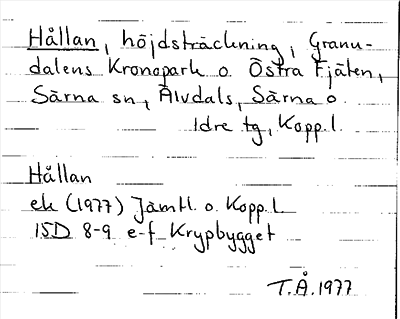 Hållan, höjdsträckning, Granu-
dalens Kronopark o. Östra Fjäten,
Särna sn, Älvdals, Särna o.
Idre tg, Kopp.l.
Hållan
ek (1977) Jämtl. o. Kopp.l.
15D 8-9 e-f Krypbygget
T.Å. 1977